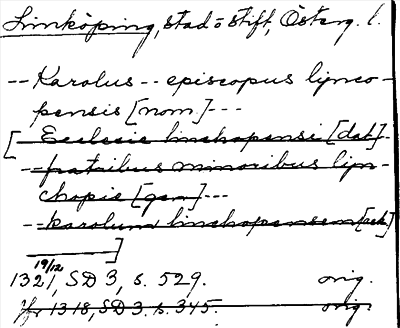 Linköping, stad o stift, Österg. l.
-- Karolus -- episcopus lynco-
pensis [nom] ---
[ Ecclesie linchopensi [dat] -
-- fratribus minoribus lyn-
chopie [gen] ---
-- karolum linchopensem [ack]
]
19/12
1321, SD 3, s. 529. orig.
1318, SD 3 s. 345. orig.